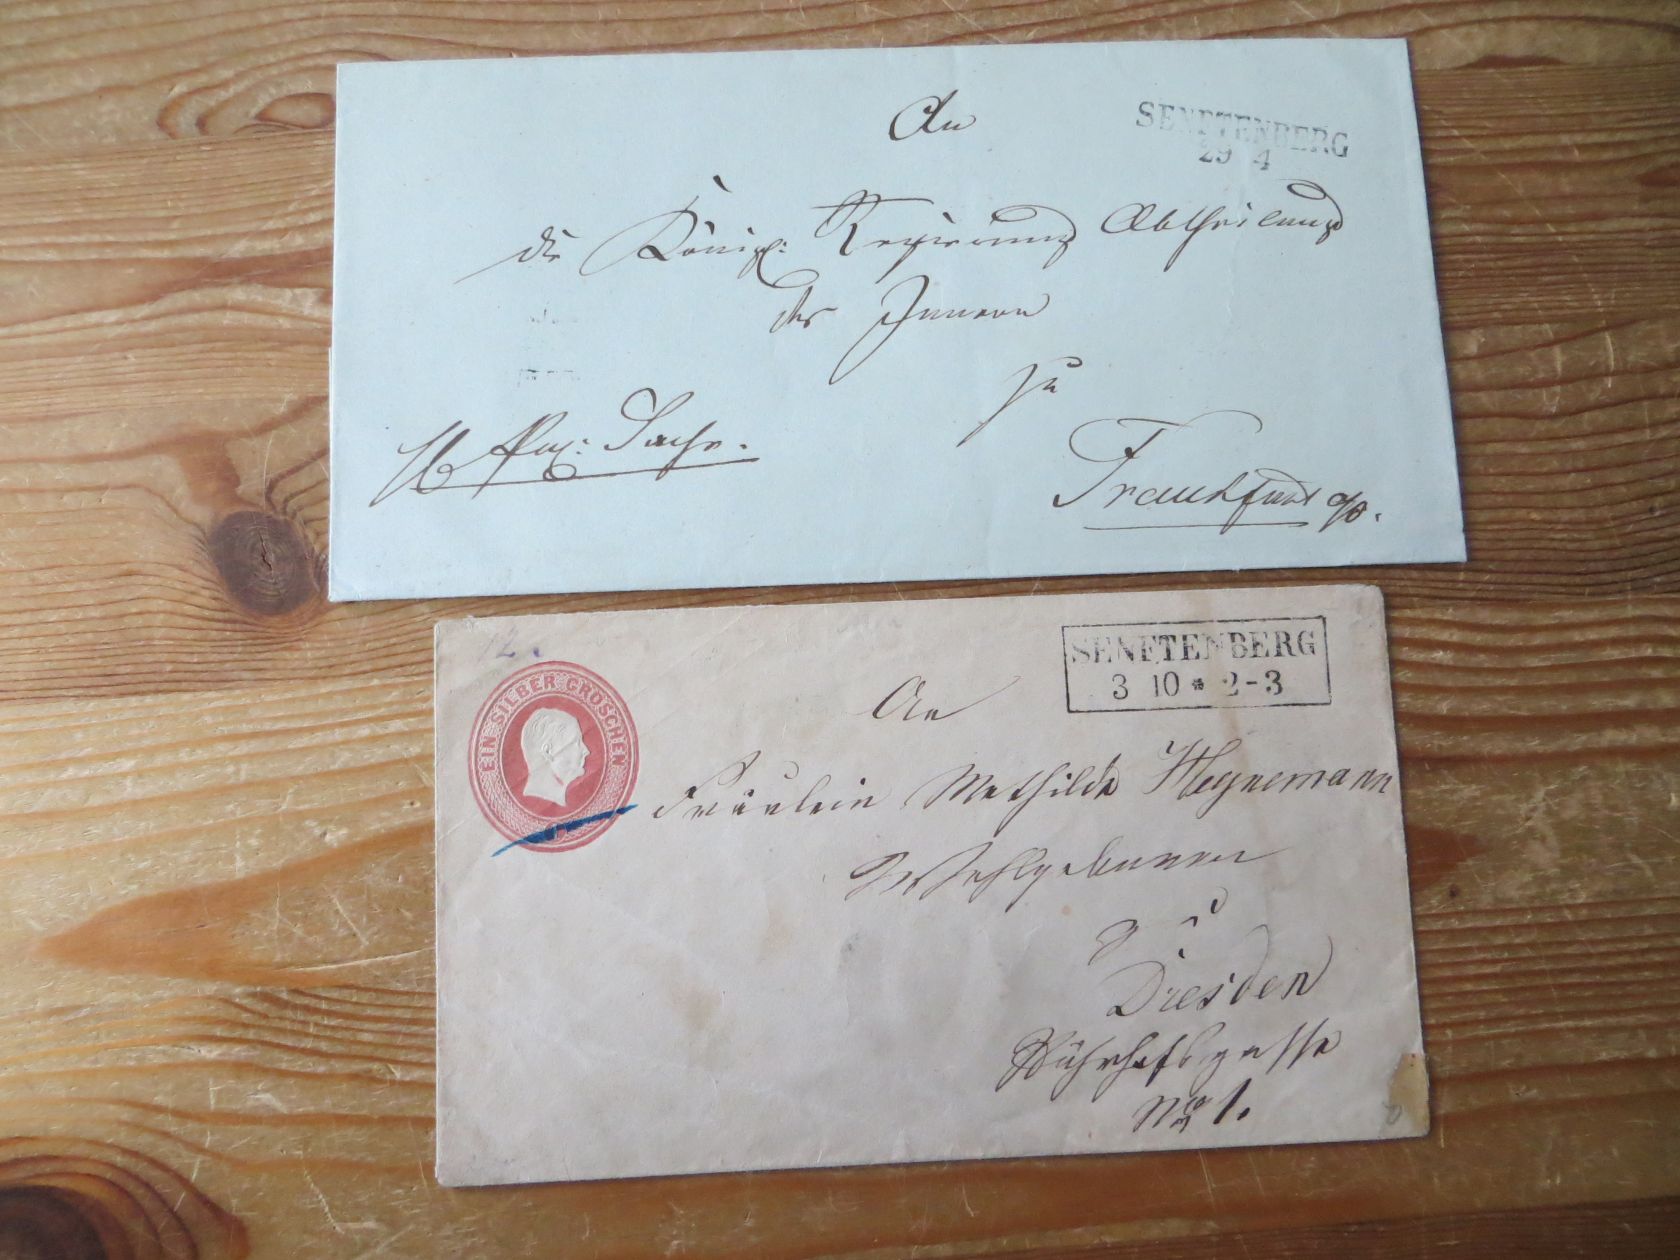 An
SENFTENBERG
29 4
die Königl: Regierung Abtheilung
des Innern
zu
Sache.
Frankfurt a/O.
12
EIN SILBER GROSCHEN
SENFTENBERG
3 10 * 2-3
An
Fräulein Mathilde Heynemann
Wohlgeboren
zu
Dresden
No 1.